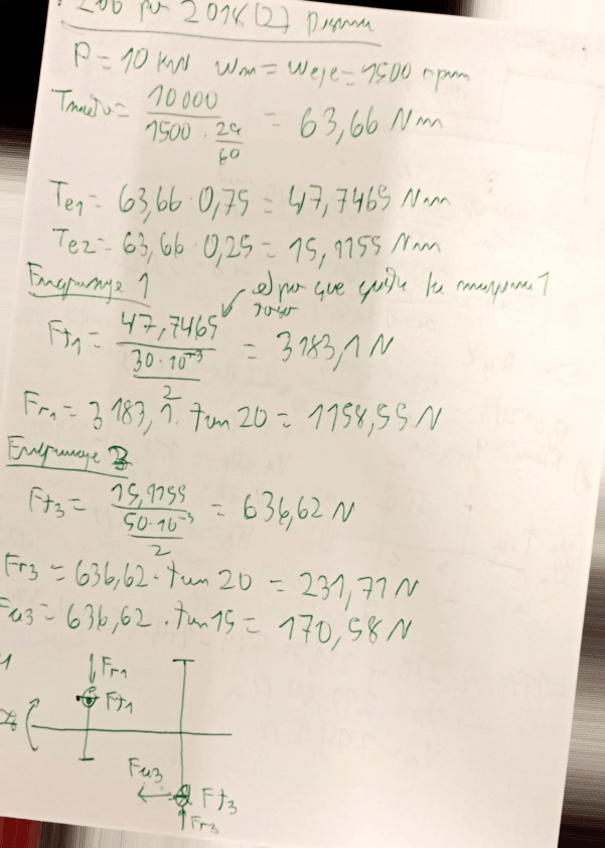 2018 (2)
P = 10 kW Wm = Weje = 1500 rpm
Tmotor = 10000 / (1500 · 2π/60) = 63,66 Nm
Te1 = 63,66 · 0,75 = 47,7465 Nm
Te2 = 63,66 · 0,25 = 15,9155 Nm
Engranaje 1
Ft1 = 47,7465 / (30·10⁻³ / 2) = 3183,1 N
Fr1 = 3183,1 · tan 20 = 1158,55 N
Engranaje 3
Ft3 = 15,9155 / (50·10⁻³ / 2) = 636,62 N
Fr3 = 636,62 · tan 20 = 231,71 N
Fa3 = 636,62 · tan 15 = 170,58 N
Fr1
Ft1
Fa3
Ft3
Fr3